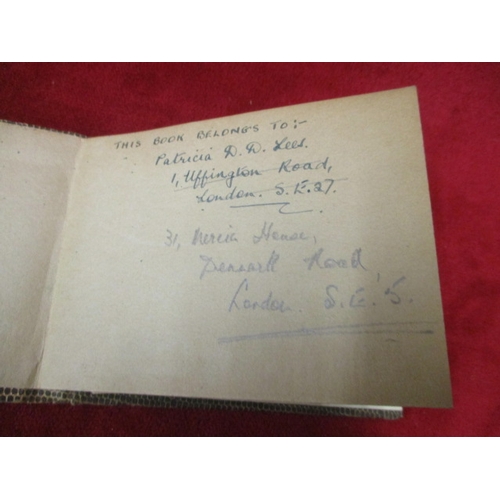 THIS BOOK BELONGS TO:-
Patricia D. D. Lees.
1, Uffington Road,
London. S.E.27.
31, Mercia House,
Denmark Road
London. S.E.5.